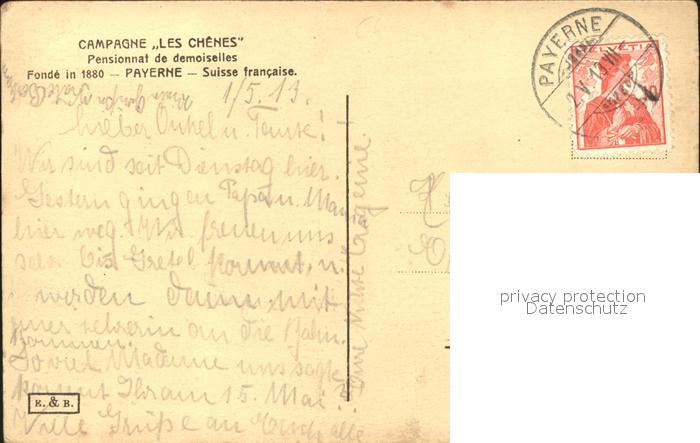 CAMPAGNE „LES CHÊNES"
Pensionnat de demoiselles
Fondé in 1880 — PAYERNE — Suisse française.
1/5. 13.
Lieber Onkel u. Tante!
Wir sind seit Dienstag hier.
Gestern gingen Papa u. Mama
hier weg. Wir freuen uns
sehr bis Gretel kommt, u.
werden dann mit
lehrerin an die Bahn
kommen.
Soviel Madame uns sagte
kommt Ihr am 15. Mai.
Viele Grüße an Euch alle
Eure Nichte
E. & B.
PAYERNE
HELVETIA
privacy protection
Datenschutz